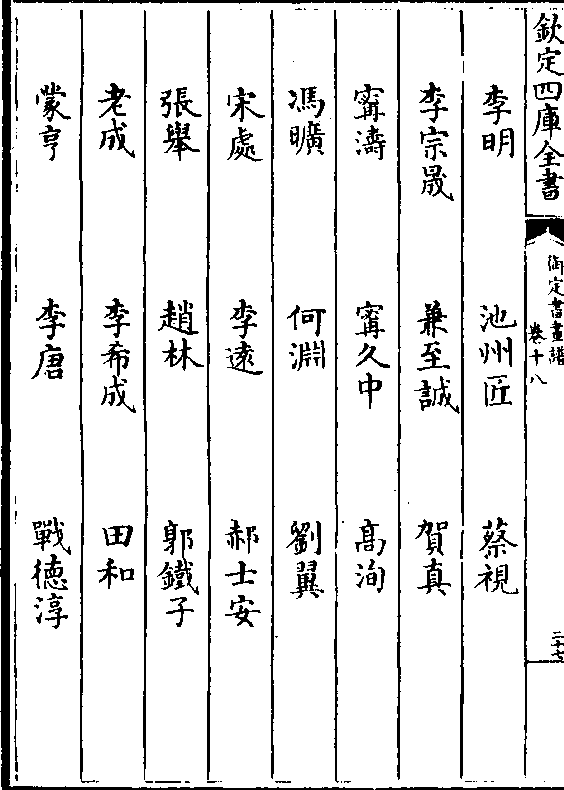 欽定四庫全書
御定書畫譜
卷十八
二十七
李明 池州匠 蔡視
李宗晟 兼至誠 賀真
甯濤 甯久中 高洵
馮曠 何淵 劉翼
宋處 李遠 郝士安
張舉 趙林 郭鐵子
老成 李希成 田和
蒙亨 李唐 戰德淳